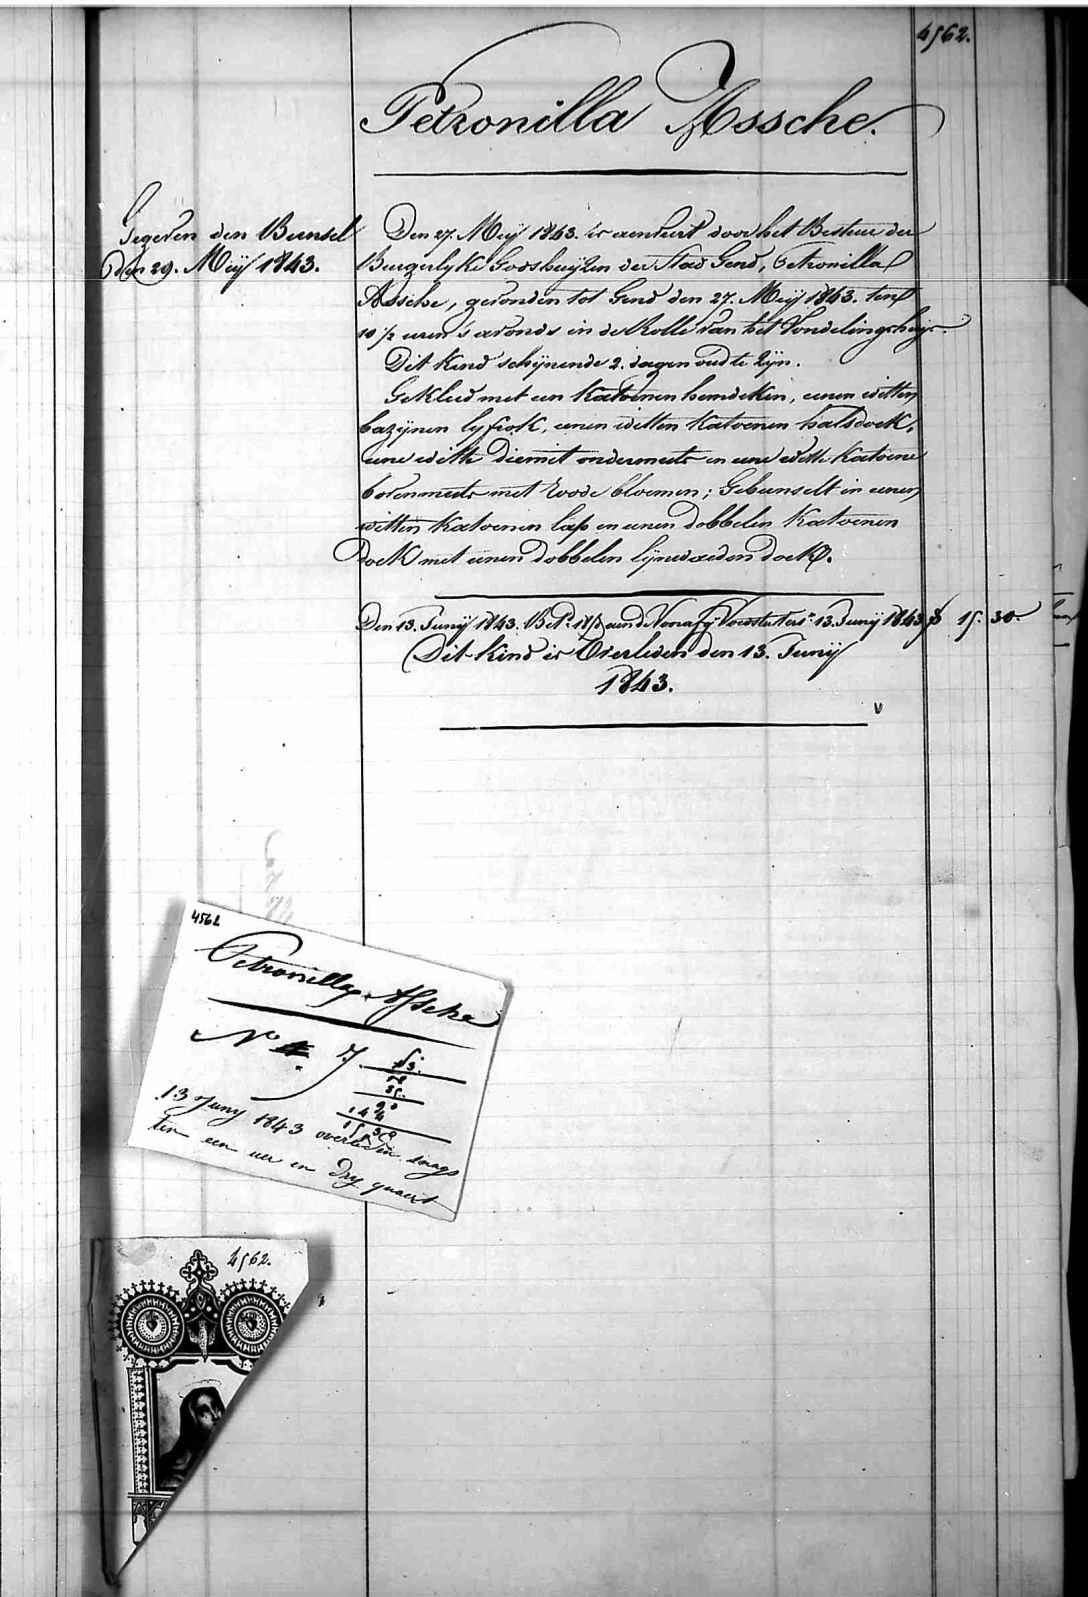 4562.
Petronilla Assche.
Gegeven den Bunsel
den 29. Meÿ 1843.
Den 27. Meÿ 1843. is aenveirt door het Bestuer der
Burgerlyke Godshuÿzen der Stad Gend, Petronilla
Assche, gevonden tot Gend den 27. Meÿ 1843. ten
10 1/2 uren s'avonds in de Rolle van het Vondelingshuys.
Dit Kind schÿnende 2. dagen oud te zÿn.
Gekleed met een Katoenen hemdeken, eenen witten
bazÿnen lyfrok, eenen witten Katoenen halsdoek,
eene witte diemit ondermuts en eene witte Katoene
bovenmuts met roode bloemen; Gebunselt in eenen
witten Katoenen lap en eenen dobbelen Katoenen
doek met eenen dobbelen lÿnwaeden doek.
Den 13. Junÿ 1843. Bet. aen de 13. Junÿ 1843 15. 30.
Dit Kind is Overleden den 13. Junÿ
1843.
4562
Petronilla Assche
No 7.
13 Juny 1843 overleden snags
ten een uer en dry quaert
4562.